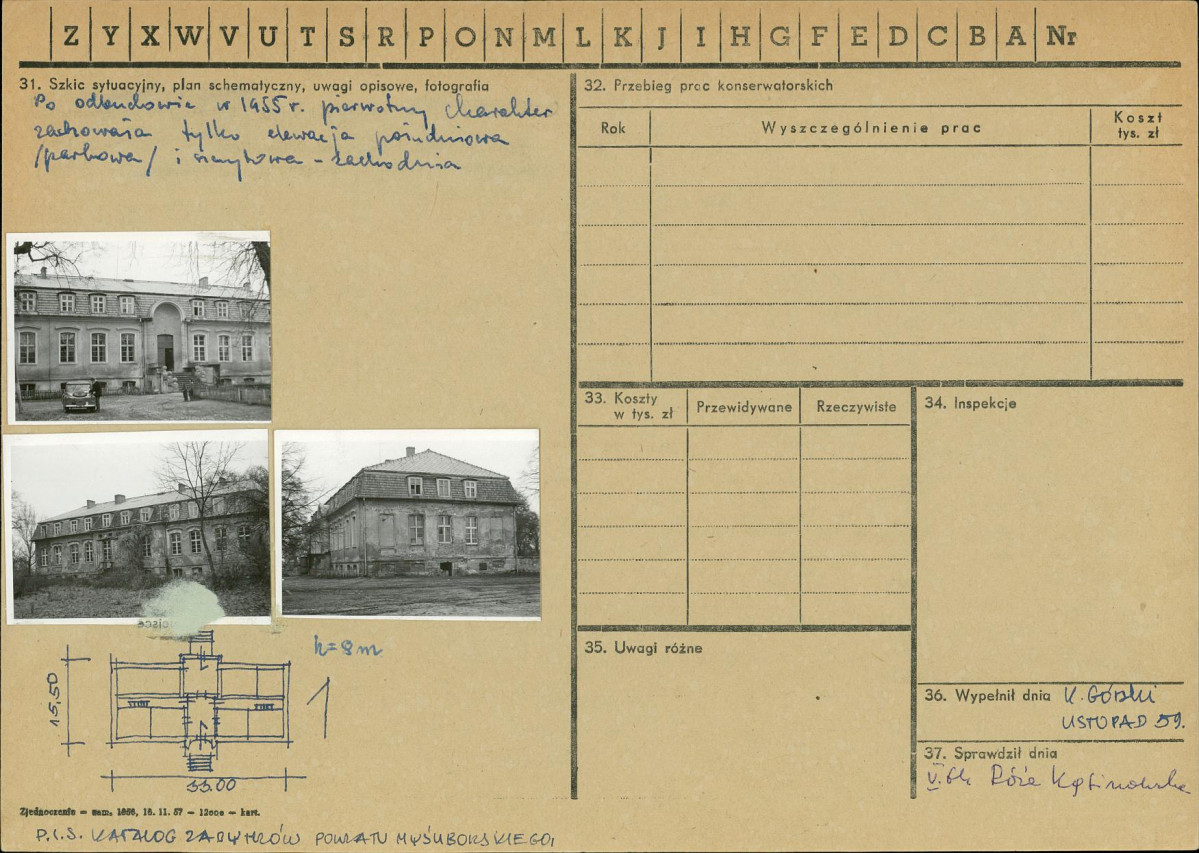 Z Y X W V U T S R P O N M L K J I H G F E D C B A Nr
31. Szkic sytuacyjny, plan schematyczny, uwagi opisowe, fotografia
Po odbudowie w 1955 r. pierwotny charakter
zachowała tylko elewacja południowa
/parkowa/ i szczytowa - zachodnia
h=9m
15,50
33.00
Zjednoczenie — zam. 1866, 16. 11. 57 — 12000 — kart.
P.I.S. KATALOG ZABYTKÓW POWIATU MYŚLIBORSKIEGO,
32. Przebieg prac konserwatorskich
Rok
Wyszczególnienie prac
Koszt
tys. zł
33. Koszty
w tys. zł
Przewidywane
Rzeczywiste
34. Inspekcje
35. Uwagi różne
36. Wypełnił dnia K. Górski
LISTOPAD 59.
37. Sprawdził dnia
Róża Kąsinowska